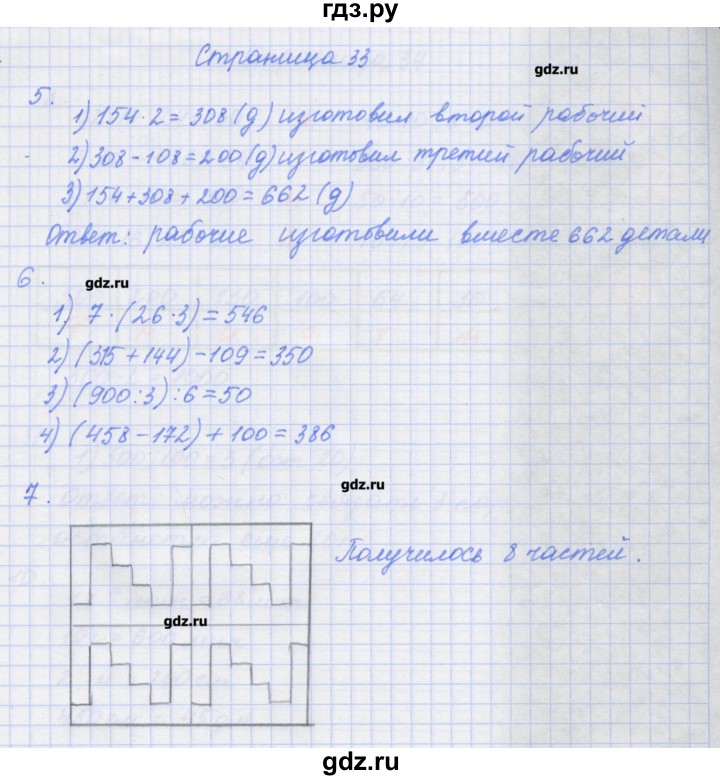 гдз.ру
Страница 33
gdz.ru
5.
1) 154·2=308(д) изготовил второй рабочий
2) 308-108=200(д) изготовил третий рабочий
3) 154+308+200=662(д)
Ответ: рабочие изготовили вместе 662 детали
6.
gdz.ru
1) 7·(26·3)=546
2) (315+144)-109=350
3) (900:3):6=50
4) (458-172)+100=386
7.
gdz.ru
Получилось 8 частей.
gdz.ru
gdz.ru